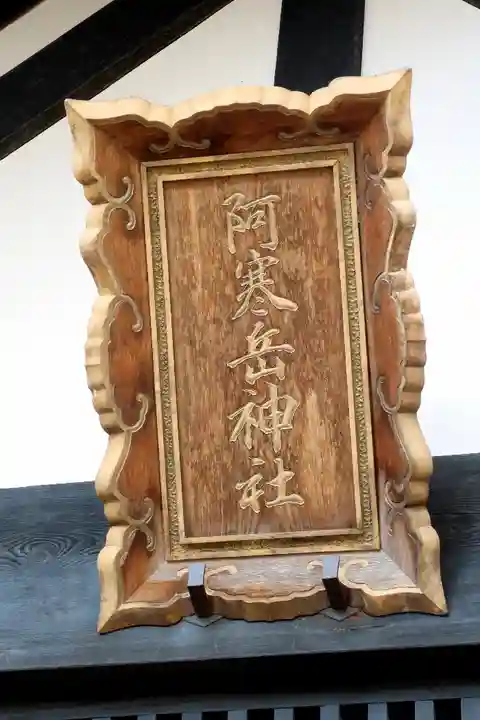 阿寒岳神社